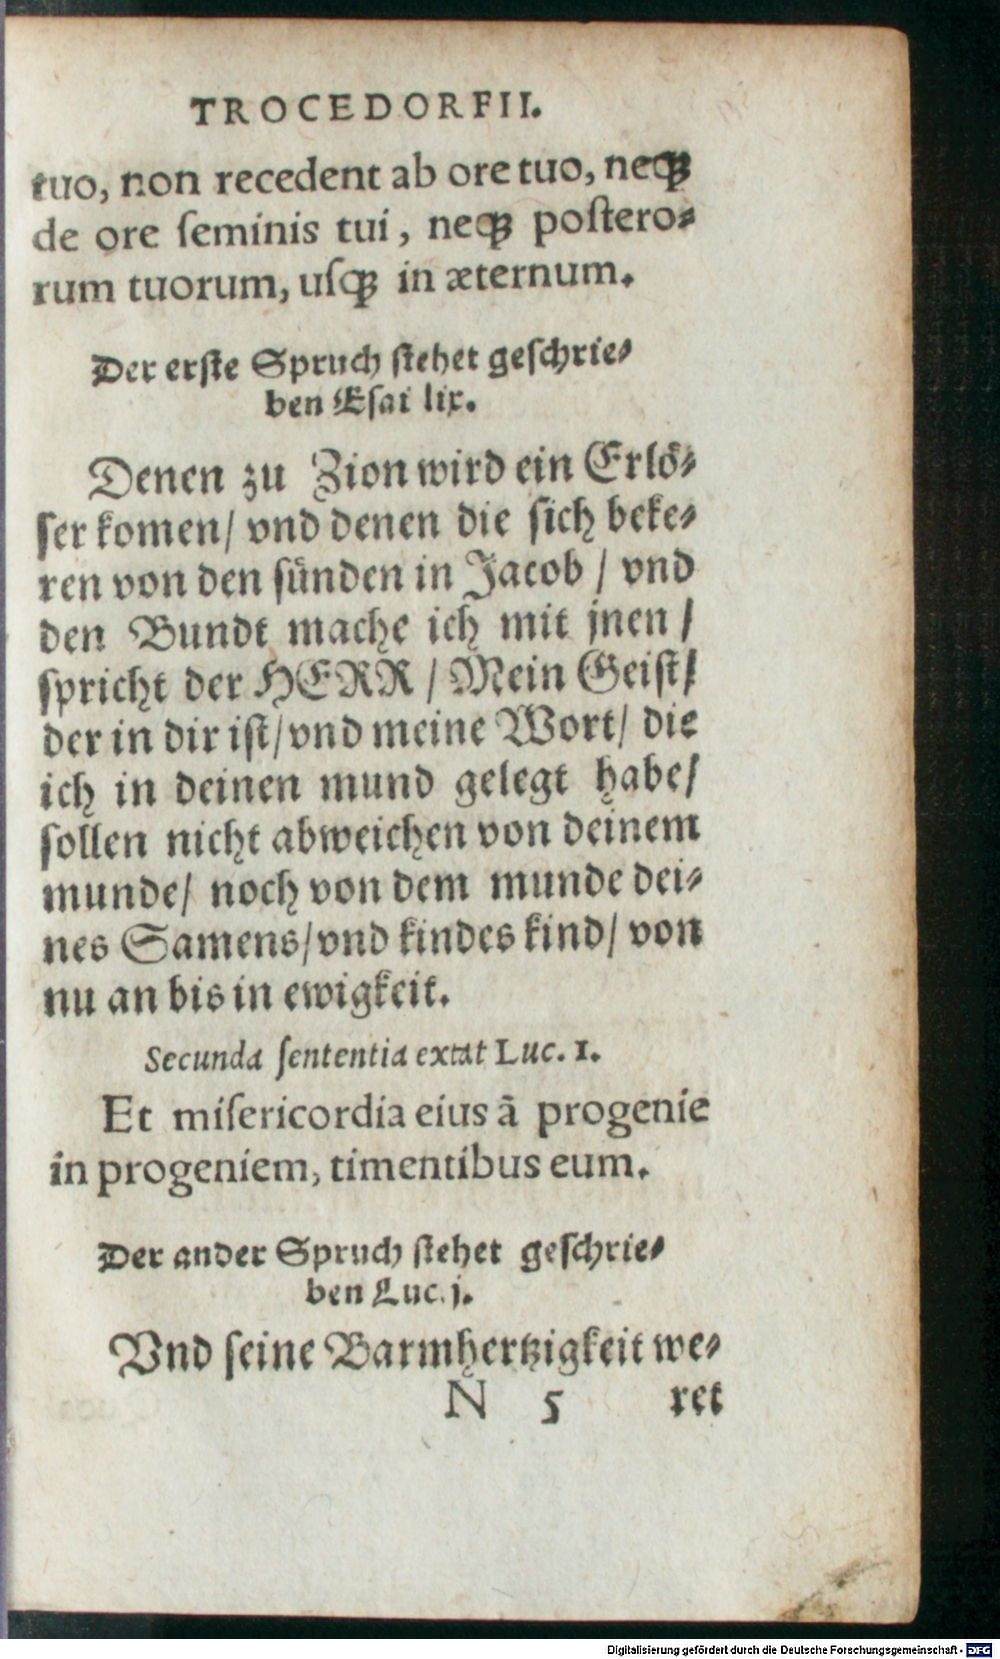 TROCEDORFII.
tuo, non recedent ab ore tuo, neqꝫ
de ore ſeminis tui, neqꝫ poſtero⸗
rum tuorum, uſqꝫ in æternum.
Der erſte Spruch ſtehet geſchrie⸗
ben Eſai lix.
Denen zu Zion wird ein Erlö⸗
ſer komen/ vnd denen die ſich beke⸗
ren von den ſünden in Jacob / vnd
den Bundt mache ich mit jnen /
ſpricht der HERR / Mein Geiſt/
der in dir iſt/ vnd meine Wort/ die
ich in deinen mund gelegt habe/
ſollen nicht abweichen von deinem
munde/ noch von dem munde dei⸗
nes Samens/ vnd kindes kind/ von
nu an bis in ewigkeit.
Secunda ſententia extat Luc. 1.
Et miſericordia eius ā progenie
in progeniem, timentibus eum.
Der ander Spruch ſtehet geſchrie⸗
ben Luc. j.
Vnd ſeine Barmhertzigkeit we⸗
N 5 ret
Digitalisierung gefördert durch die Deutsche Forschungsgemeinschaft - DFG